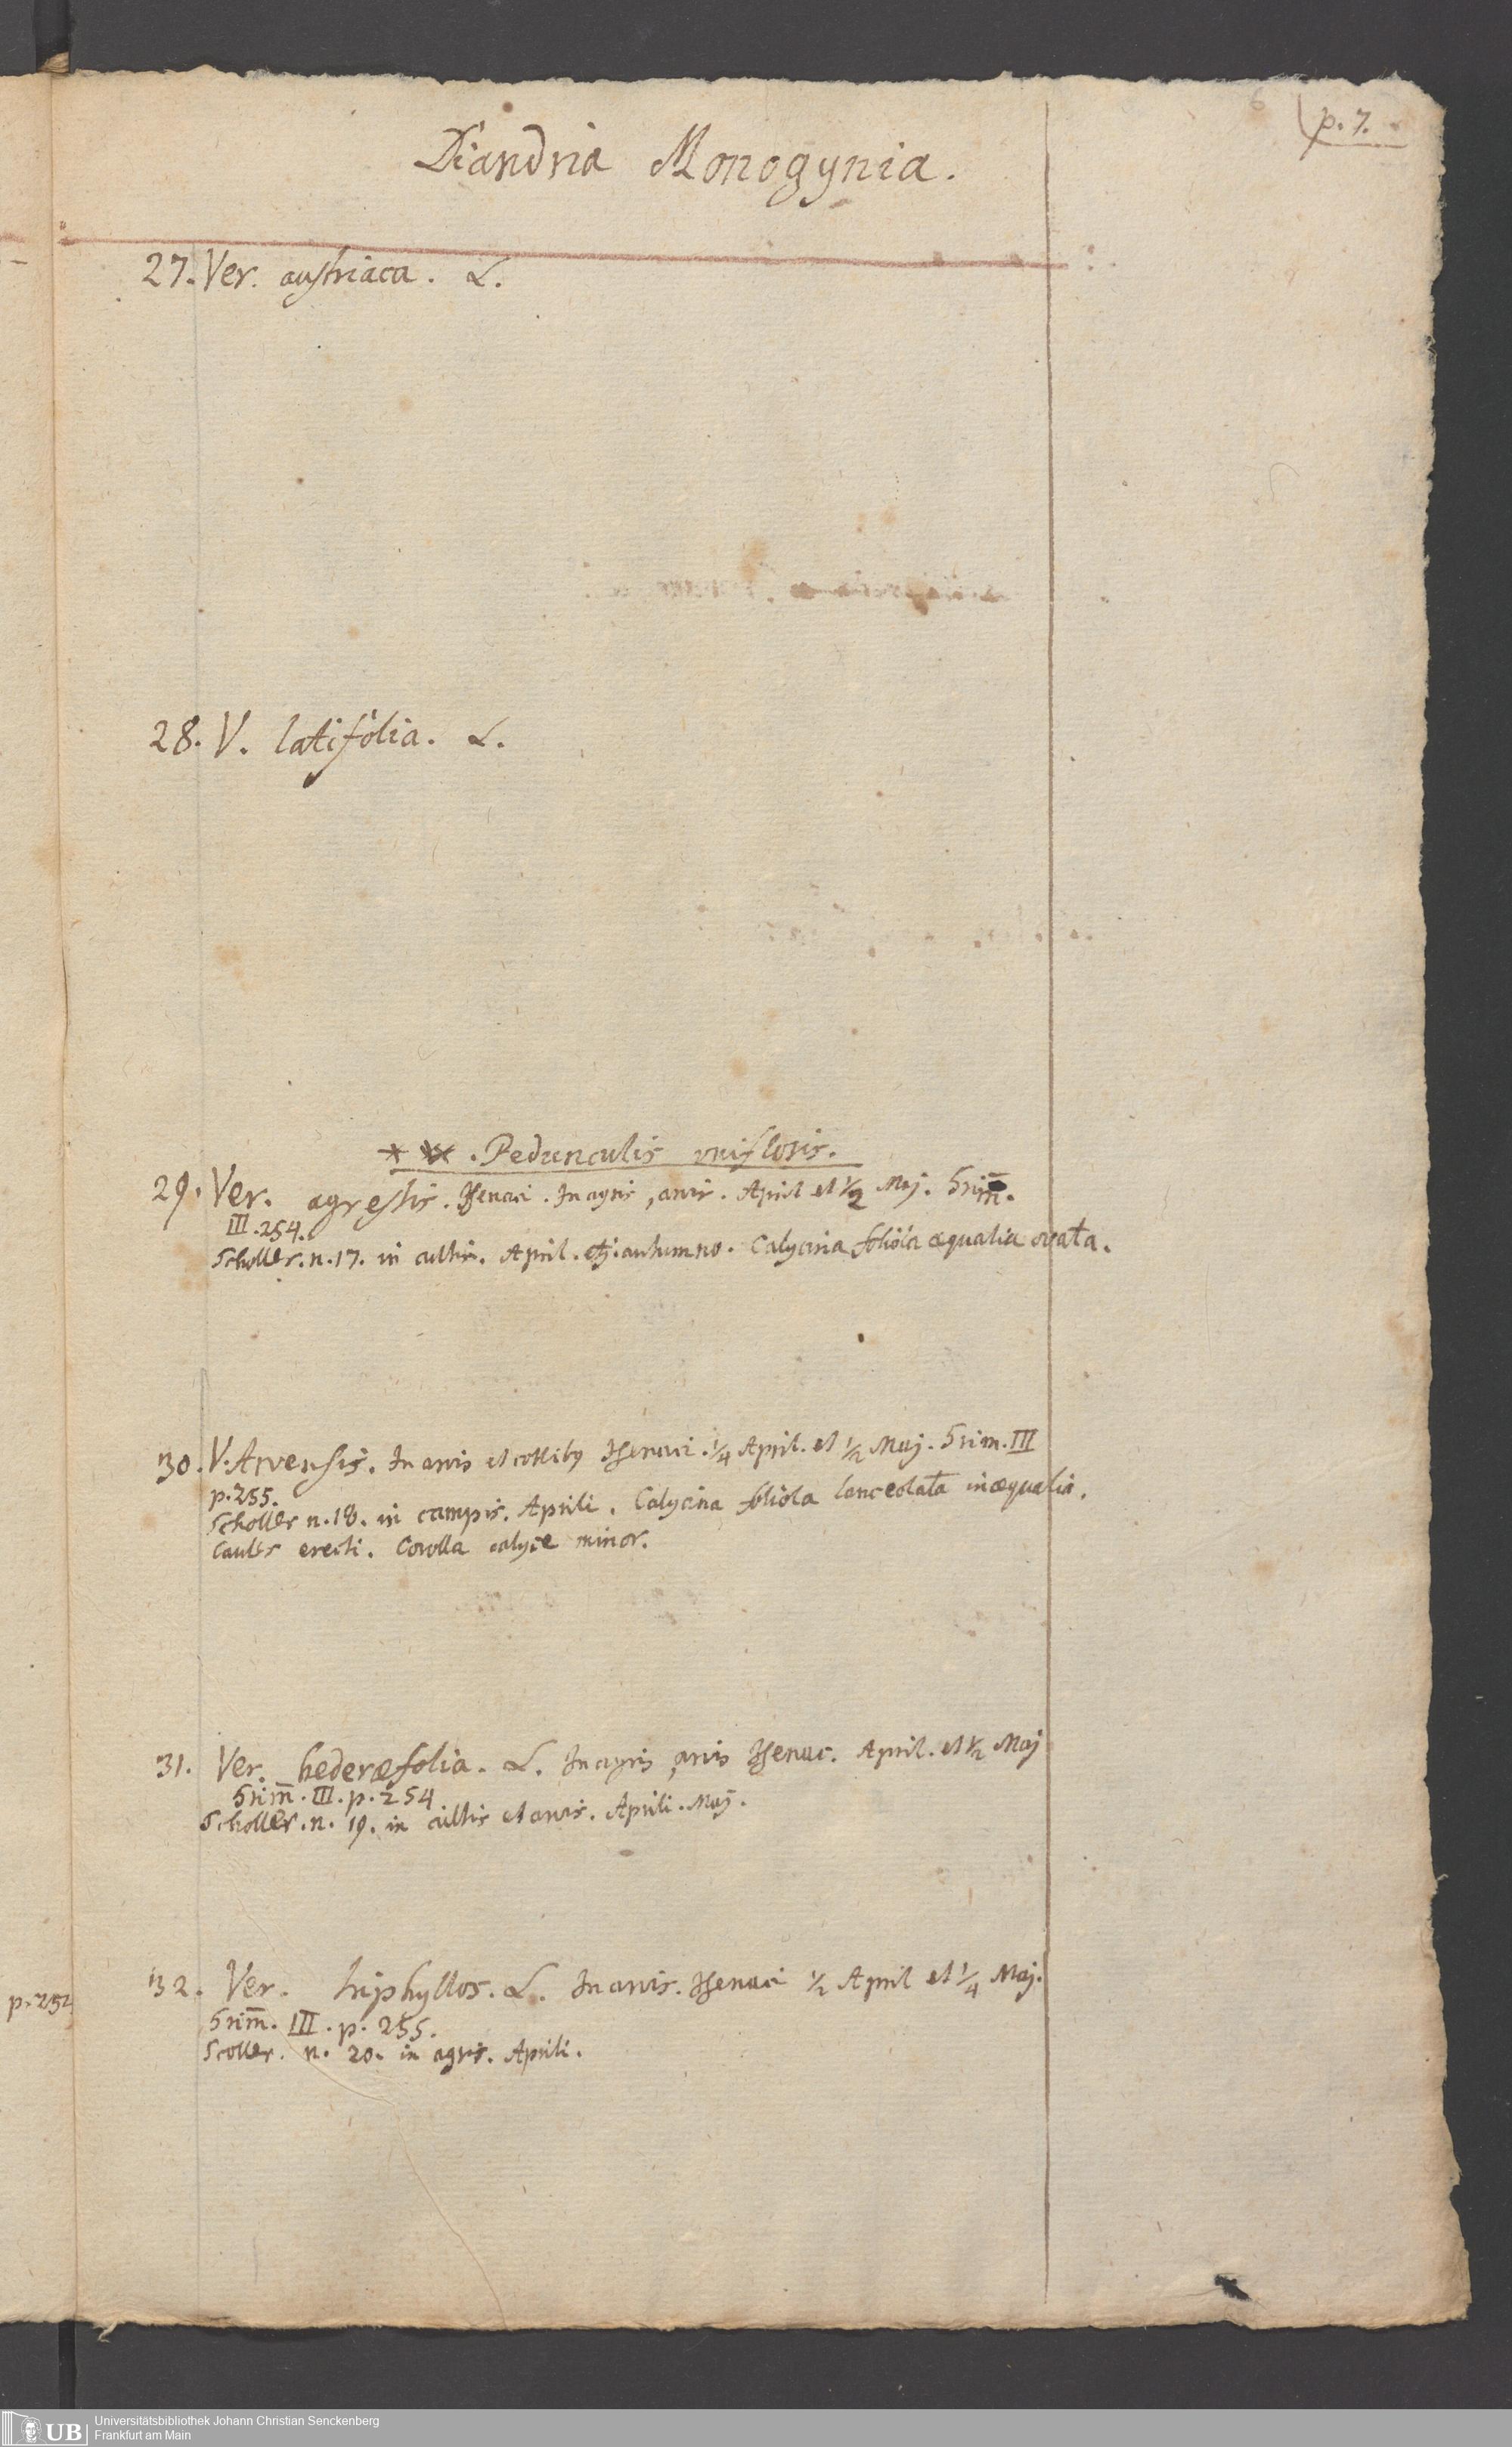 p. 7.
Diandria Monogynia.
27. Ver. austriaca. L.
28. V. latifolia. L.
* * . Pedunculis unifloris.
29. Ver. agrestis. Isenaci. In agris, arvis. April et 1/2 Maj. Grim̅.
III. 254.
Scholler. n. 17. in cultis. April. autumno. Calycina foliola æqualia ovata.
30. V. Arvensis. In arvis et collib9 Isenaci. 1/4 April. et 1/2 Maj. Grim. III
p. 255.
Scholler n. 18. in campis. Aprili. Calycina foliola lanceolata inæqualia.
Caules erecti. Corolla calyce minor.
31. Ver. hederæfolia. L. In agris, arvis Isenac. April. et 1/2 Maj
Grim̅. III. p. 254
Scholler. n. 19. in cultis et arvis. Aprili. Maj.
32. Ver. triphyllos. L. In arvis. Isenaci 1/2 April et 1/4 Maj.
Grim̅. III. p. 255.
Scoller. n. 20. in agris. Aprili.
p. 252
UB
Universitätsbibliothek Johann Christian Senckenberg
Frankfurt am Main